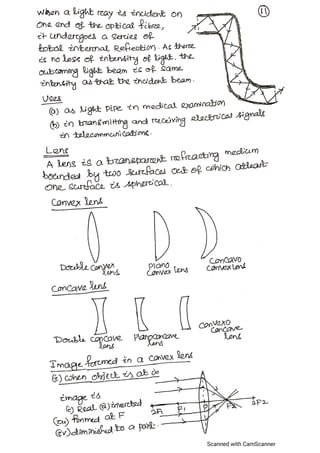 when a light ray is incident on
one end of the optical fibre,
it undergoes a series of
total internal Reflection. As there
is no loss of intensity of light, the
outcoming light beam is of same
intensity as that the incident beam.
11
Uses
(a) as light pipe in medical examination
(b) in transmitting and receiving electrical signals
in telecommunications.
Lens
A lens is a transparent refracting medium
bounded by two surfaces out of which atleast
one surface is spherical.
Convex lens
Double convex lens
Plano convex lens
Concavo convex lens
Concave lens
Double concave lens
Planoconcave lens
Convexo concave lens
Image formed in a convex lens
(i) when object is at ∞
image is
(i) Real (ii) inverted
(iii) formed at F
(iv) diminished to a point.
2F1 F1 O F2 2F2
Scanned with CamScanner